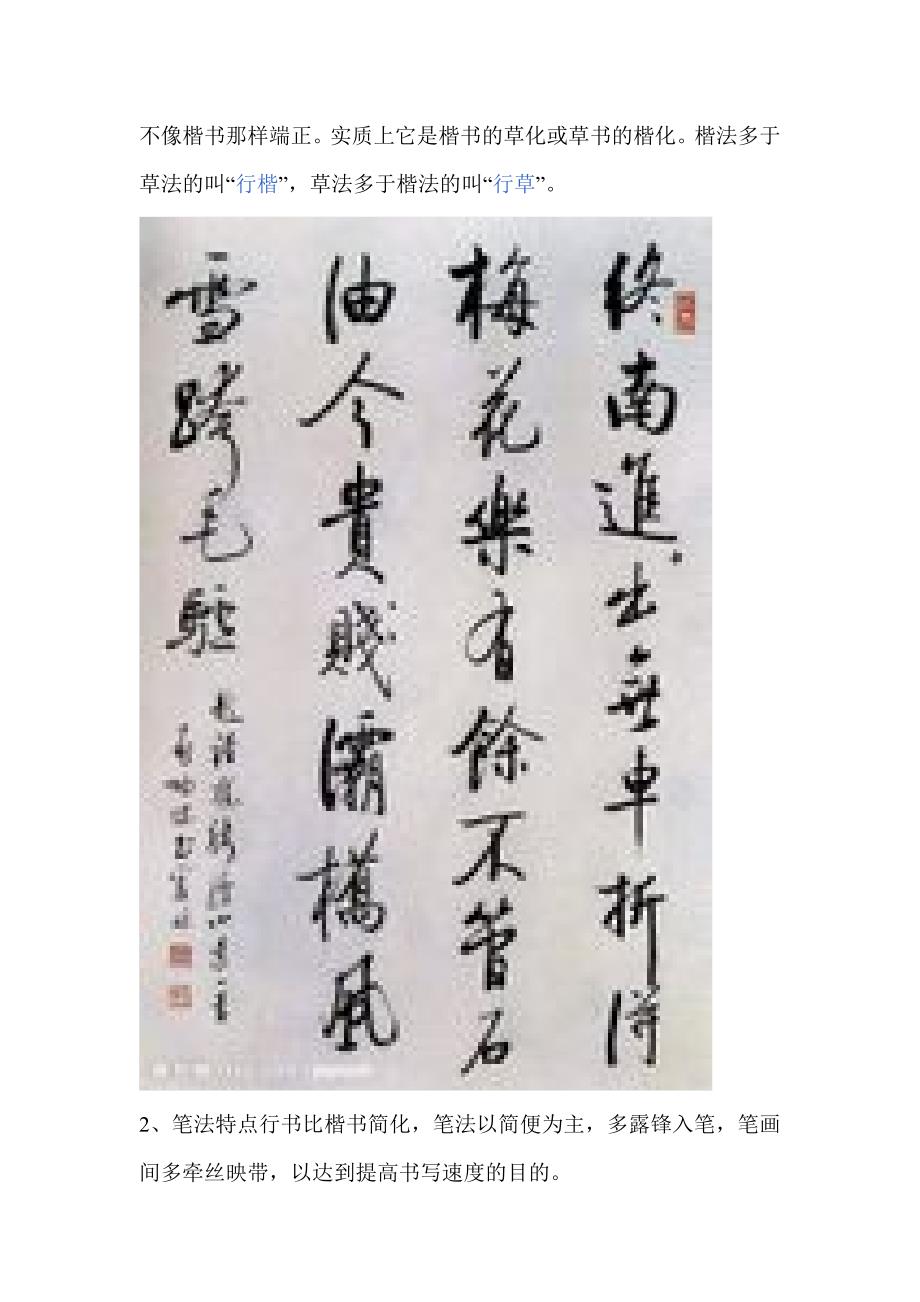 不像楷书那样端正。实质上它是楷书的草化或草书的楷化。楷法多于
草法的叫“行楷”，草法多于楷法的叫“行草”。
终南進士無車折得
梅花樂有餘不管石
油今貴賤灞橋風
雪跨毛驢
2、笔法特点行书比楷书简化，笔法以简便为主，多露锋入笔，笔画
间多牵丝映带，以达到提高书写速度的目的。